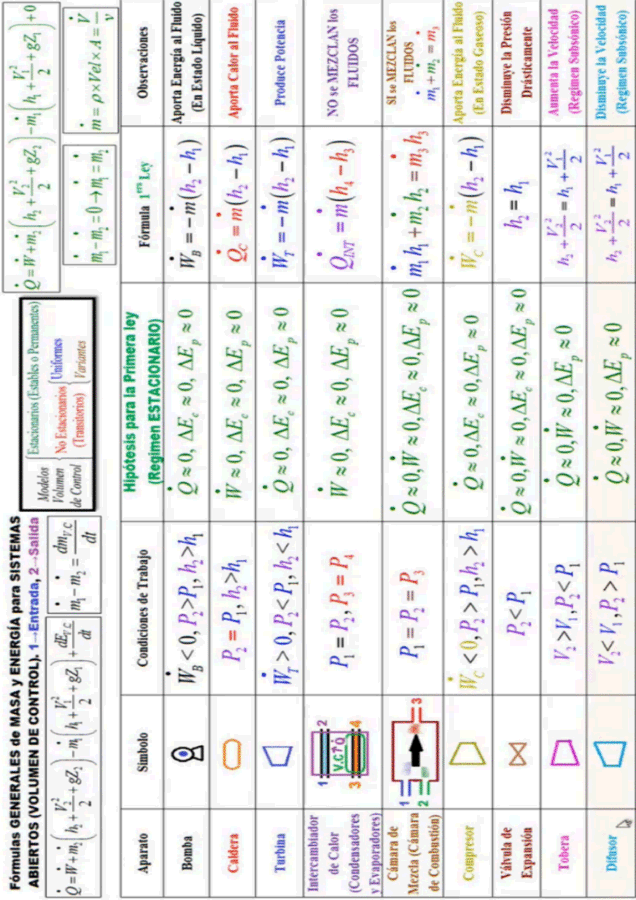 Fórmulas GENERALES de MASA y ENERGÍA para SISTEMAS
ABIERTOS (VOLUMEN DE CONTROL). 1→Entrada, 2→Salida
Q̇ = Ẇ + ṁ₂(h₂ + V₂²/2 + gZ₂) − ṁ₁(h₁ + V₁²/2 + gZ₁) + dE_V.C/dt
ṁ₁ − ṁ₂ = dm_V.C/dt
Modelos Volumen de Control
Estacionarios (Estables o Permanentes)
No Estacionarios (Transitorios)
Uniformes
Variantes
Q̇ = Ẇ + ṁ₂(h₂ + V₂²/2 + gZ₂) − ṁ₁(h₁ + V₁²/2 + gZ₁) + 0
ṁ₁ − ṁ₂ = 0 → ṁ₁ = ṁ₂
ṁ = ρ × Vel × A = V̇/v
Aparato Símbolo Condiciones de Trabajo Hipótesis para la Primera ley (Regimen ESTACIONARIO) Fórmula 1era Ley Observaciones
Bomba Ẇ_B < 0, P₂ > P₁, h₂ > h₁ Q̇ ≈ 0, ΔE_c ≈ 0, ΔE_p ≈ 0 Ẇ_B = −ṁ(h₂ − h₁) Aporta Energía al Fluido (En Estado Líquido)
Caldera P₂ = P₁, h₂ > h₁ Ẇ ≈ 0, ΔE_c ≈ 0, ΔE_p ≈ 0 Q̇_C = ṁ(h₂ − h₁) Aporta Calor al Fluido
Turbina Ẇ_T > 0, P₂ < P₁, h₂ < h₁ Q̇ ≈ 0, ΔE_c ≈ 0, ΔE_p ≈ 0 Ẇ_T = −ṁ(h₂ − h₁) Produce Potencia
Intercambiador de Calor (Condensadores y Evaporadores) 1 2 V.C.T.O 3 4 P₁ = P₂, P₃ = P₄ Ẇ ≈ 0, ΔE_c ≈ 0, ΔE_p ≈ 0 Q̇_INT = ṁ(h₄ − h₃) NO se MEZCLAN los FLUIDOS
Cámara de Mezcla (Cámara de Combustión) 1 2 3 P₁ = P₂ = P₃ Q̇ ≈ 0, Ẇ ≈ 0, ΔE_c ≈ 0, ΔE_p ≈ 0 ṁ₁h₁ + ṁ₂h₂ = ṁ₃h₃ SI se MEZCLAN los FLUIDOS ṁ₁ + ṁ₂ = ṁ₃
Compresor Ẇ_C < 0, P₂ > P₁, h₂ > h₁ Q̇ ≈ 0, ΔE_c ≈ 0, ΔE_p ≈ 0 Ẇ_C = −ṁ(h₂ − h₁) Aporta Energía al Fluido (En Estado Gaseoso)
Válvula de Expansión P₂ < P₁ Q̇ ≈ 0, Ẇ ≈ 0, ΔE_c ≈ 0, ΔE_p ≈ 0 h₂ = h₁ Disminuye la Presión Drásticamente
Tobera V₂ > V₁, P₂ < P₁ Q̇ ≈ 0, Ẇ ≈ 0, ΔE_p ≈ 0 h₂ + V₂²/2 = h₁ + V₁²/2 Aumenta la Velocidad (Regimen Subsónico)
Difusor V₂ < V₁, P₂ > P₁ Q̇ ≈ 0, Ẇ ≈ 0, ΔE_p ≈ 0 h₂ + V₂²/2 = h₁ + V₁²/2 Disminuye la Velocidad (Regimen Subsónico)